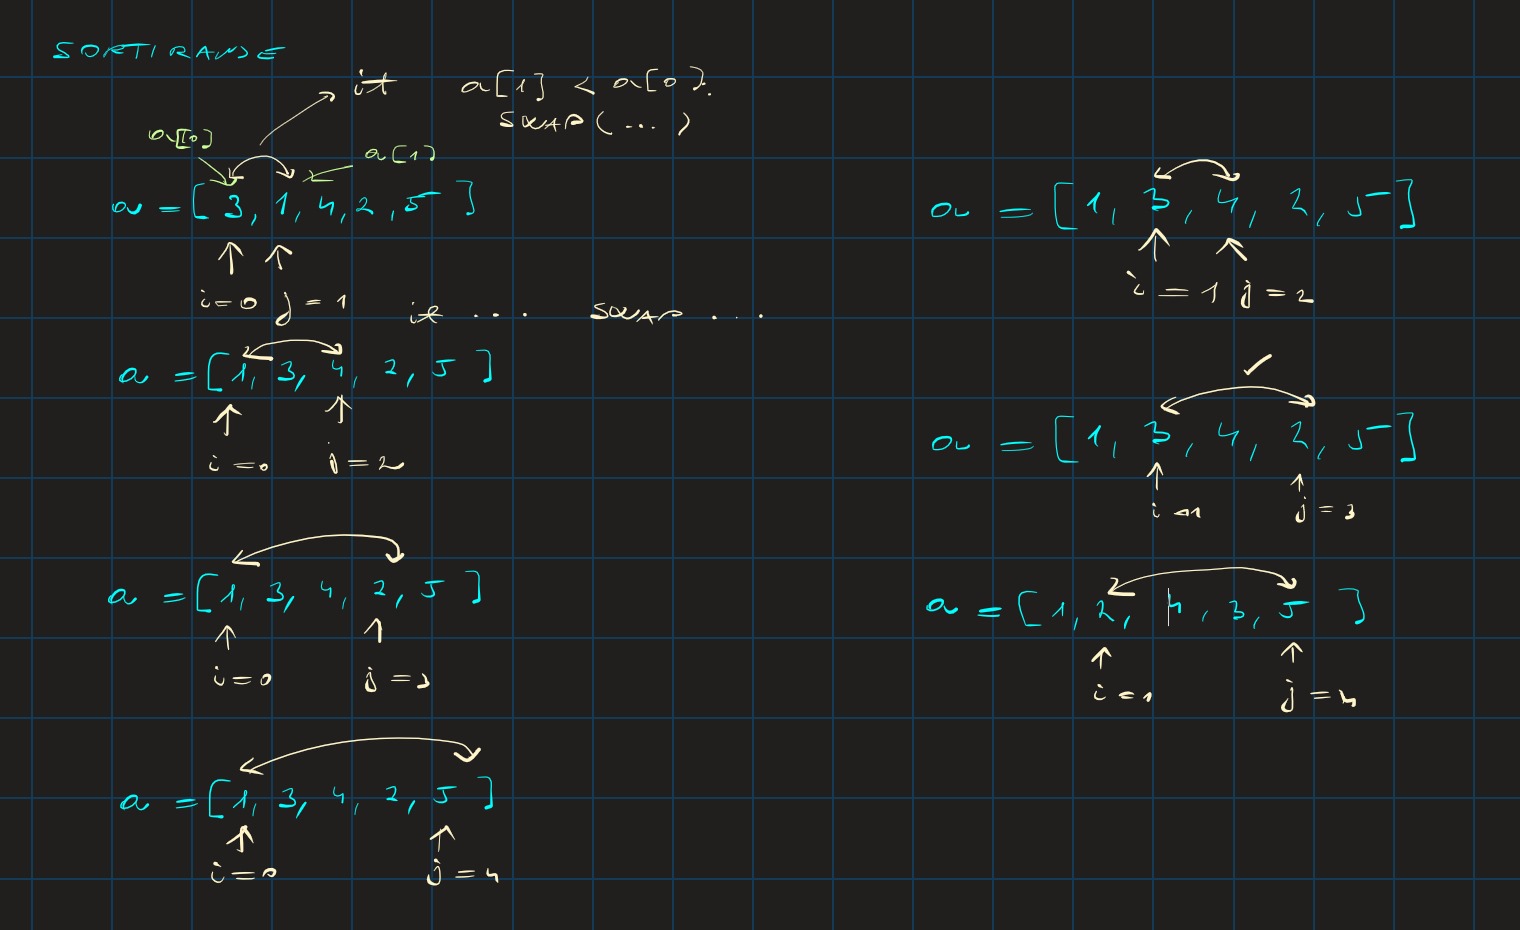 SORTIRANJE
if a[1] < a[0]:
SWAP(...)
a[0]
a[1]
a = [3, 1, 4, 2, 5]
i=0 j=1
if ... SWAP ...
a = [1, 3, 4, 2, 5]
i=0 j=2
a = [1, 3, 4, 2, 5]
i=0 j=3
a = [1, 3, 4, 2, 5]
i=0 j=4
a = [1, 3, 4, 2, 5]
i=1 j=2
a = [1, 3, 4, 2, 5]
i=1 j=3
a = [1, 2, 4, 3, 5]
i=1 j=4